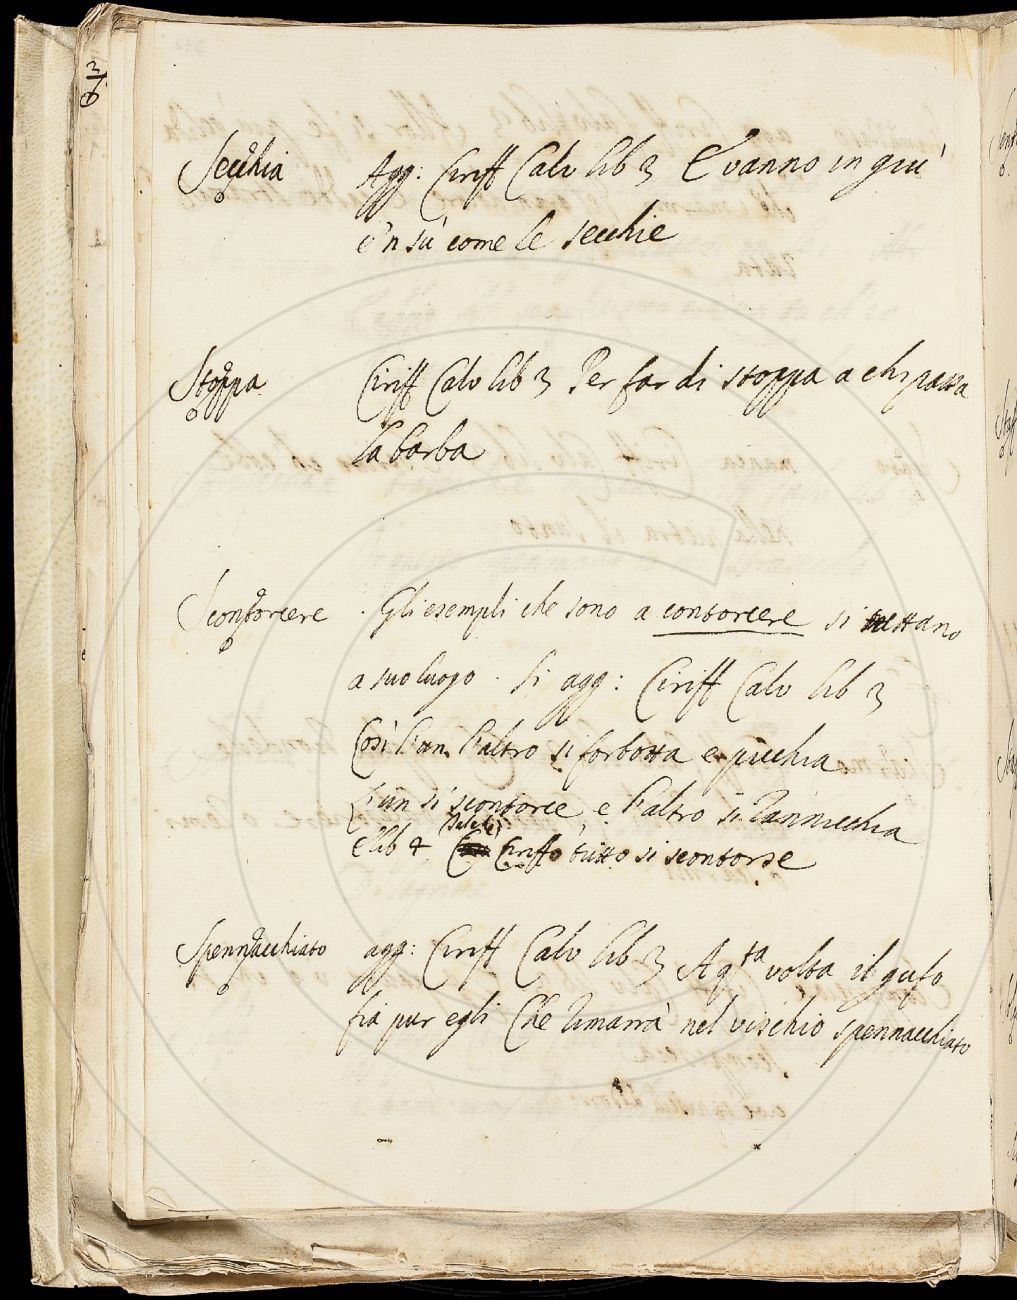 Secchia Agg: Ciriff Calv lib 3 E vanno in giu'
e'n sù come le secchie
Stoppa Ciriff Calv lib 3 Per far di stoppa a chi passa
la barba
Scontorcere Gli esempli che sono a contorcere si mettano
a suo luogo. Si agg: Ciriff Calv lib 3
Così l'un l'altro si forbotta e picchia
L'un si scontorce, e l'altro si rannicchia
E lib 4 Ciriffo tutto si scontorse
Spennacchiato agg: Ciriff Calv lib 3 A qta volta il gufo
fia pur egli Che rimarrà nel vischio spennacchiato